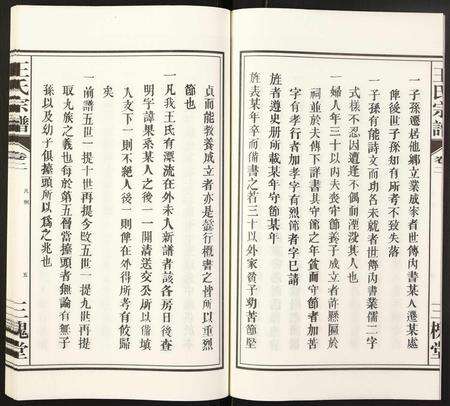 王氏宗譜 卷二 三槐堂
一子孫遷居他鄉立業成家者世傳內書某人遷某處
俾後世子孫知有所考不致失落
一子孫有能詩文而功名未就者世傳內書業儒二字
式樣不忍因遭逢不偶而湮沒其人也
一婦人年三十以內夫喪守節養子成立者許懸匾於
祠並於夫傳下詳書其守節之年貧而守節者加苦
字有孝行者加孝字有烈節者字已請
旌者遵史册所載某年守節某年
旌表某年卒而備書之若三十以外家貧子幼苦節堅
貞而能教養成立者亦是懿行概書之皆所以重烈
節也
一凡我王氏有漂流在外未入新譜者該各房日後查
明字諱果系某人之後一一開清送交公所以備填
人支下一則不絕人後一則俾在外得所考有攸歸
矣
一前譜五世一提十世再提今改五世一提九世再提
取九族之義也每於第五層當擡頭者無論有無子
孫以及幼子俱擡頭所以為之兆也
王氏宗譜 卷二 凡例 五 三槐堂